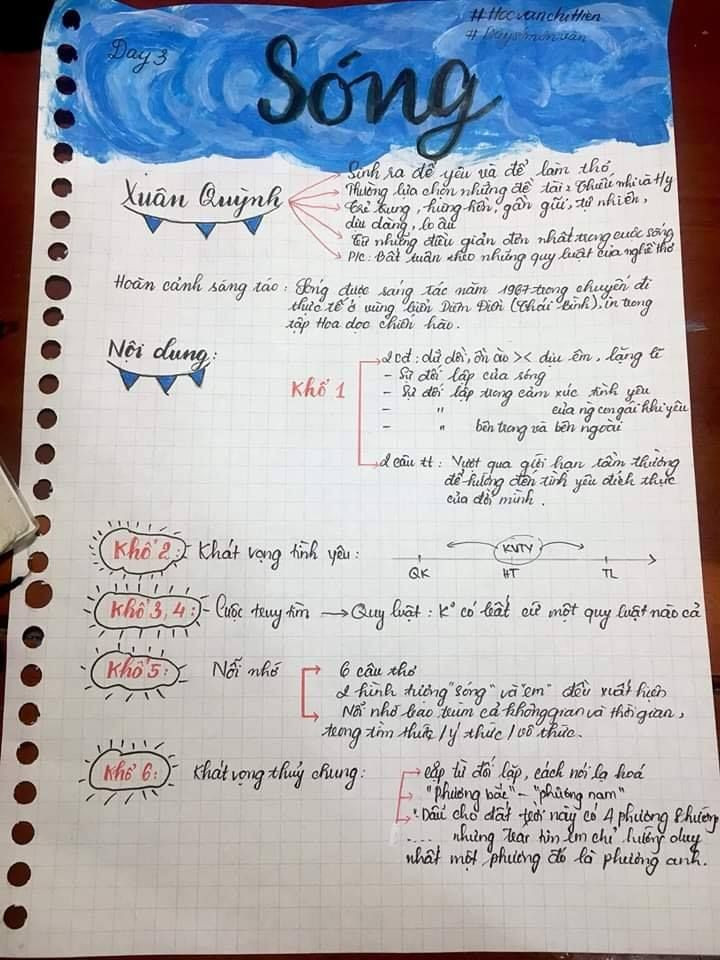 #Hocvanchihien
Day 3
# Dayhmonvan
Sóng
Xuân Quỳnh
Sinh ra để yêu và để làm thơ
Thường lựa chọn những đề tài: Thiếu nhi và Hy
Trẻ trung, hừng hên, gần gũi, tự nhiên,
dịu dàng, lo âu
Từ những điều giản đơn nhất trong cuộc sống
P/c: Bất tuân theo những quy luật của nghề thơ
Hoàn cảnh sáng táo: Sóng được sáng tác năm 1967 trong chuyến đi
thực tế ở vùng biển Diêm Điền (Thái Bình), in trong
tập Hoa dọc chiến hào.
Nội dung:
Khổ 1
2 cđ: dữ dội, ồn ào >< dịu êm, lặng lẽ
- Sự đối lập của sóng
- Sự đối lập trong cảm xúc tình yêu
- " của ng con gái khi yêu
- " bên trong và bên ngoài
2 câu tt: Vượt qua giới hạn tầm thường
để hướng đến tình yêu đích thực
của đời mình.
Khổ 2: Khát vọng tình yêu:
KVTY
QK HT TL
Khổ 3,4: Cuộc truy tìm → Quy luật: K° có bất cứ một quy luật nào cả
Khổ 5: Nỗi nhớ
6 câu thơ
2 hình tượng "sóng" và "em" đều xuất hiện
Nỗi nhớ bao trùm cả không gian và thời gian,
trong tiềm thức / ý thức / vô thức.
Khổ 6: Khát vọng thuỷ chung:
cặp từ đối lập, cách nói lạ hoá
"Phương bắc" - "phương nam"
Dẫu cho đất trời này có 4 phương 8 hướng
.... nhưng trái tim em chỉ hướng duy
nhất một phương đó là phương anh.